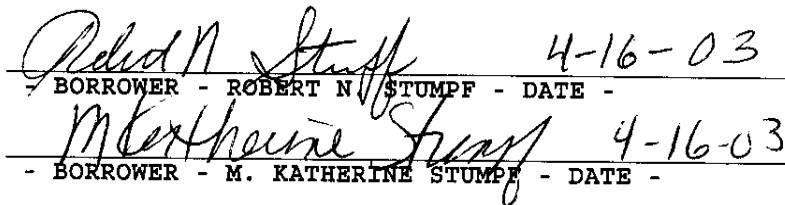 Robert N Stumpf 4-16-03
- BORROWER - ROBERT N. STUMPF - DATE -
M Katherine Stumpf 4-16-03
- BORROWER - M. KATHERINE STUMPF - DATE -